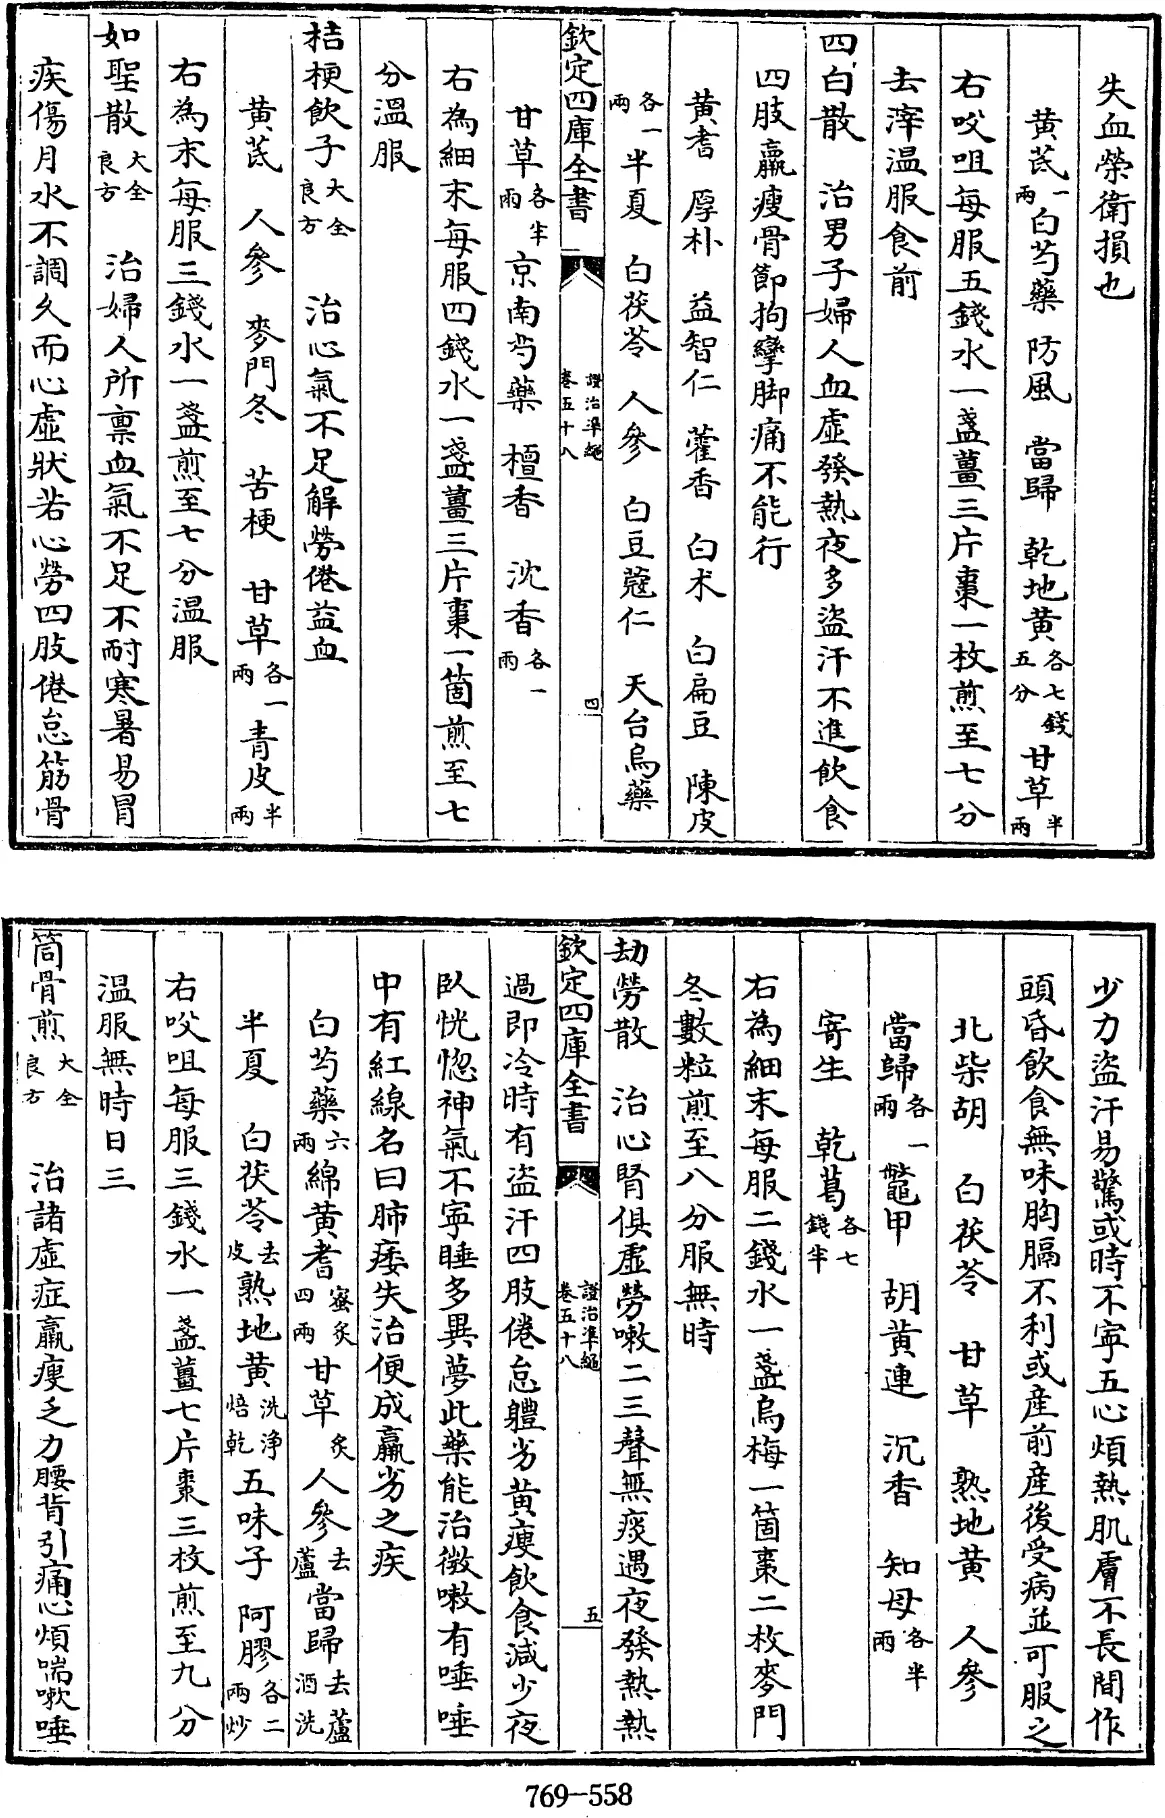 失血榮衛損也
黄芪一兩白芍藥 防風 當歸 乾地黄各七錢五分甘草半兩
右㕮咀每服五錢水一盞薑三片棗一枚煎至七分
去滓温服食前
四白散 治男子婦人血虛發熱夜多盜汗不進飲食
四肢羸瘦骨節拘攣脚痛不能行
黄耆 厚朴 益智仁 藿香 白术 白扁豆 陳皮
各一兩半夏 白茯苓 人參 白豆蔻仁 天台烏藥
欽定四庫全書 證治準繩卷五十八 四
甘草各半兩京南芍藥 檀香 沈香各一兩
右為細末每服四錢水一盞薑三片棗一箇煎至七
分溫服
桔梗飲子大全良方 治心氣不足解勞倦益血
黄芪 人參 麥門冬 苦梗 甘草各一兩青皮半兩
右為末每服三錢水一盞煎至七分溫服
如聖散大全良方 治婦人所禀血氣不足不耐寒暑易冒
疾傷月水不調久而心虛狀若心勞四肢倦怠筋骨
少力盜汗易驚或時不寜五心煩熱肌膚不長間作
頭昏飲食無味胸膈不利或産前産後受病並可服之
北柴胡 白茯苓 甘草 熟地黄 人參
當歸各一兩鼈甲 胡黄連 沉香 知母各半兩
寄生 乾葛各七錢半
右為細末每服二錢水一盞烏梅一箇棗二枚麥門
冬數粒煎至八分服無時
劫勞散 治心腎俱虛勞嗽二三聲無痰遇夜發熱熱
欽定四庫全書 證治準繩卷五十八 五
過即冷時有盜汗四肢倦怠體劣黄瘦飲食減少夜
臥恍惚神氣不寜睡多異夢此藥能治微嗽有唾唾
中有紅線名曰肺痿失治便成羸劣之疾
白芍藥六兩綿黄耆蜜炙四兩甘草炙人參去蘆當歸去蘆酒洗
半夏 白茯苓去皮熟地黄洗淨焙乾五味子 阿膠各二兩炒
右㕮咀每服三錢水一盞薑七片棗三枚煎至九分
溫服無時日三
筒骨煎大全良方 治諸虛症羸瘦乏力腰背引痛心煩喘嗽唾
769-558